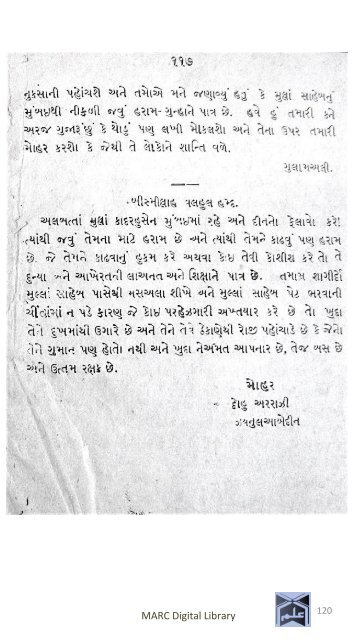 ૧૧૭
નુકસાની પહોંચશે અને તમોએ મને જણાવ્યું હતું કે મુલાં સાહેબનું
મુંબઇથી નીકળી જવું હરામ-ગુન્હાને પાત્ર છે. હવે હું તમારી કને
અરજ ગુજારૂંછું કે થોડું પણ લખી મોકલશો અને તેના ઉપર તમારી
મોહર કરશો કે જેથી તે લોકોને શાન્તિ વળે.
ગુલામઅલી.
બીસ્મીલ્લાહ વલહુલ હમ્દ.
અલબત્તાં મુલાં કાદરહુસેન મુંબઇમાં રહે અને દીનનો ફેલાવો કરે!
ત્યાંથી જવું તેમના માટે હરામ છે અને ત્યાંથી તેમને કાઢવું પણ હરામ
છે. જે તેમને કાઢવાનું હુકમ કરે અથવા કોઇ તેવી કોશીશ કરે તો તે
દુન્યા અને આખેરતની લાઅનત અને શિક્ષાને પાત્ર છે. તમામ શાગીર્દો
મુલ્લાં સાહેબ પાસેથી મસઅલા શીખે અને મુલ્લાં સાહેબ પેટ ભરવાની
ચીંતાંમાં ન પડે કારણ જે કોઇ પરહેઝગારી અખ્તયાર કરે છે તો ખુદા
તેને દુખમાંથી ઉગારે છે અને તેને તેવે ઠેકાણેથી રોજી પહોંચાડે છે કે જેનો
તેને ગુમાન પણ હોતો નથી અને ખુદા નેઅમત આપનાર છે, તેજ બસ છે
અને ઉત્તમ રક્ષક છે.
મોહર
અરરાઝી
ઝયનુલઆબેદીન
MARC Digital Library
علم
120